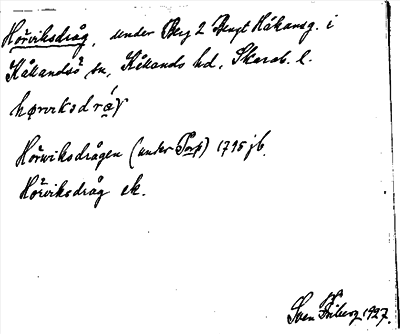 Hörviksdråg, under Berg 2 Bengt Håkansg. i
Kållandsö sn, Kållands hd, Skarab. l.
hørviksdråγ
Hörwiksdrågen (under Torp) 1795 jb.
Hörviksdråg ek.
Sven Friberg 1927.